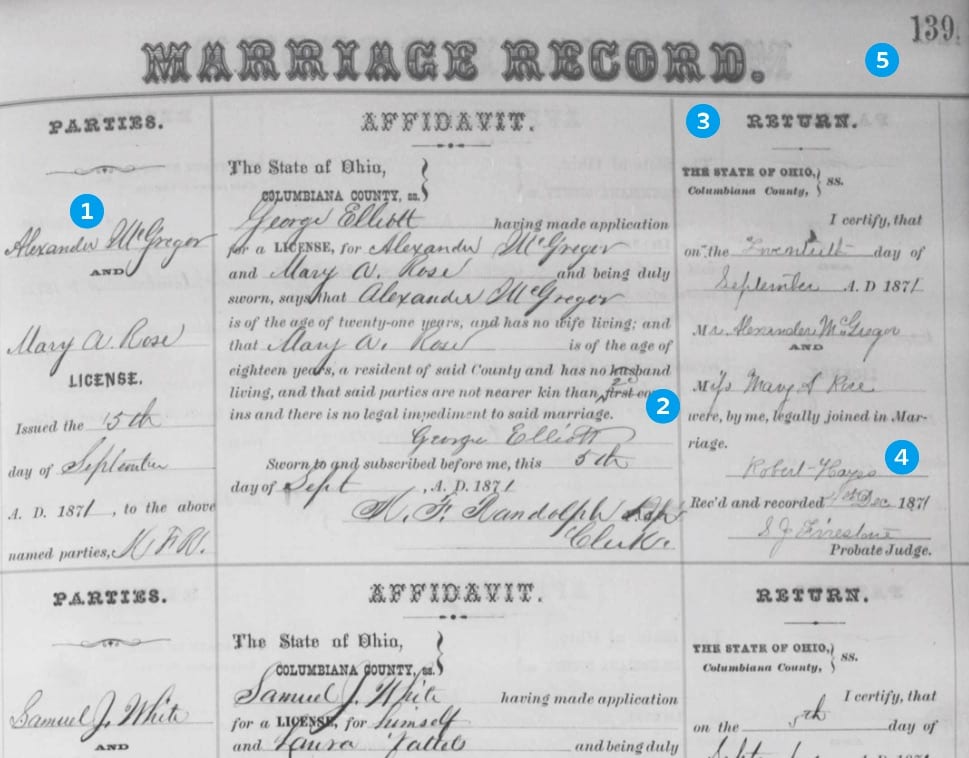 139.
MARRIAGE RECORD.
5
PARTIES.
1
Alexander McGregor
AND
Mary A. Rose
LICENSE.
Issued the 15th
day of September
A. D. 1871, to the above
named parties,
AFFIDAVIT.
The State of Ohio,
COLUMBIANA COUNTY, ss.
George Elliott having made application
for a LICENSE, for Alexander McGregor
and Mary A. Rose and being duly
sworn, says that Alexander McGregor
is of the age of twenty-one years, and has no wife living; and
that Mary A. Rose is of the age of
eighteen years, a resident of said County and has no husband
living, and that said parties are not nearer kin than first cous-
2
ins and there is no legal impediment to said marriage.
George Elliott
Sworn to and subscribed before me, this 5th
day of Sept, A. D. 1871
Randolph
Clerk.
3
RETURN.
THE STATE OF OHIO,
Columbiana County, ss.
I certify, that
on the Twentieth day of
September A. D 1871
Mr. Alexander McGregor
AND
Miss Mary A Rose
were, by me, legally joined in Mar-
riage.
4
Robert Hayes
Rec'd and recorded Dec 1871
S J Firestone
Probate Judge.
PARTIES.
Samuel J. White
AND
AFFIDAVIT.
The State of Ohio,
COLUMBIANA COUNTY, ss.
Samuel J. White having made application
for a LICENSE, for himself
and Laura and being duly
RETURN.
THE STATE OF OHIO,
Columbiana County, ss.
I certify, that
on the 5th day of